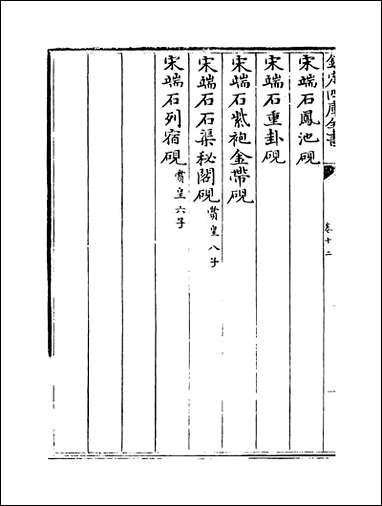 欽定四庫全書
卷十二
宋端石鳳池硯
宋端石重卦硯
宋端石紫袍金帶硯
宋端石石渠秘閣硯賞皇八子
宋端石列宿硯賞皇六子